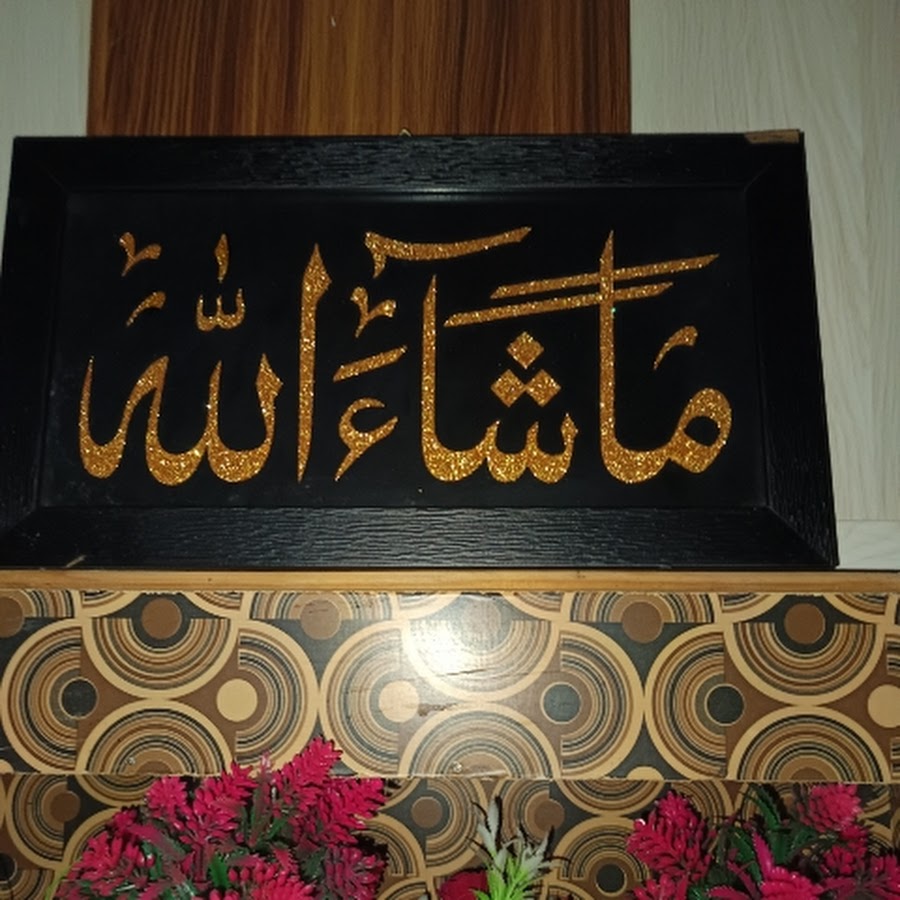 ما شآءَ الله